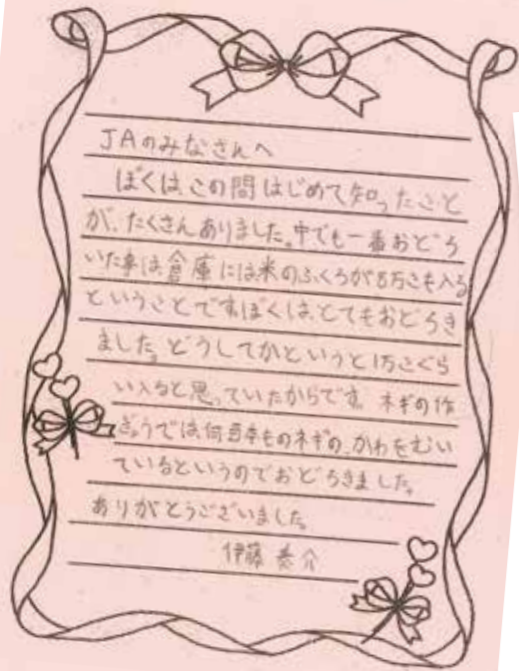 JAのみなさんへ
ぼくは、この間はじめて知ったこと
が、たくさんありました。中でも一番おどろ
いた事は倉庫には米のふくろが8万こも入る
ということです。ぼくは、とてもおどろき
ました。どうしてかというと1万こぐら
い入ると思っていたからです。ネギの作
ぎょうでは何百本ものネギの、かわをむい
ているというのでおどろきました。
ありがとうございました。
伊藤 介